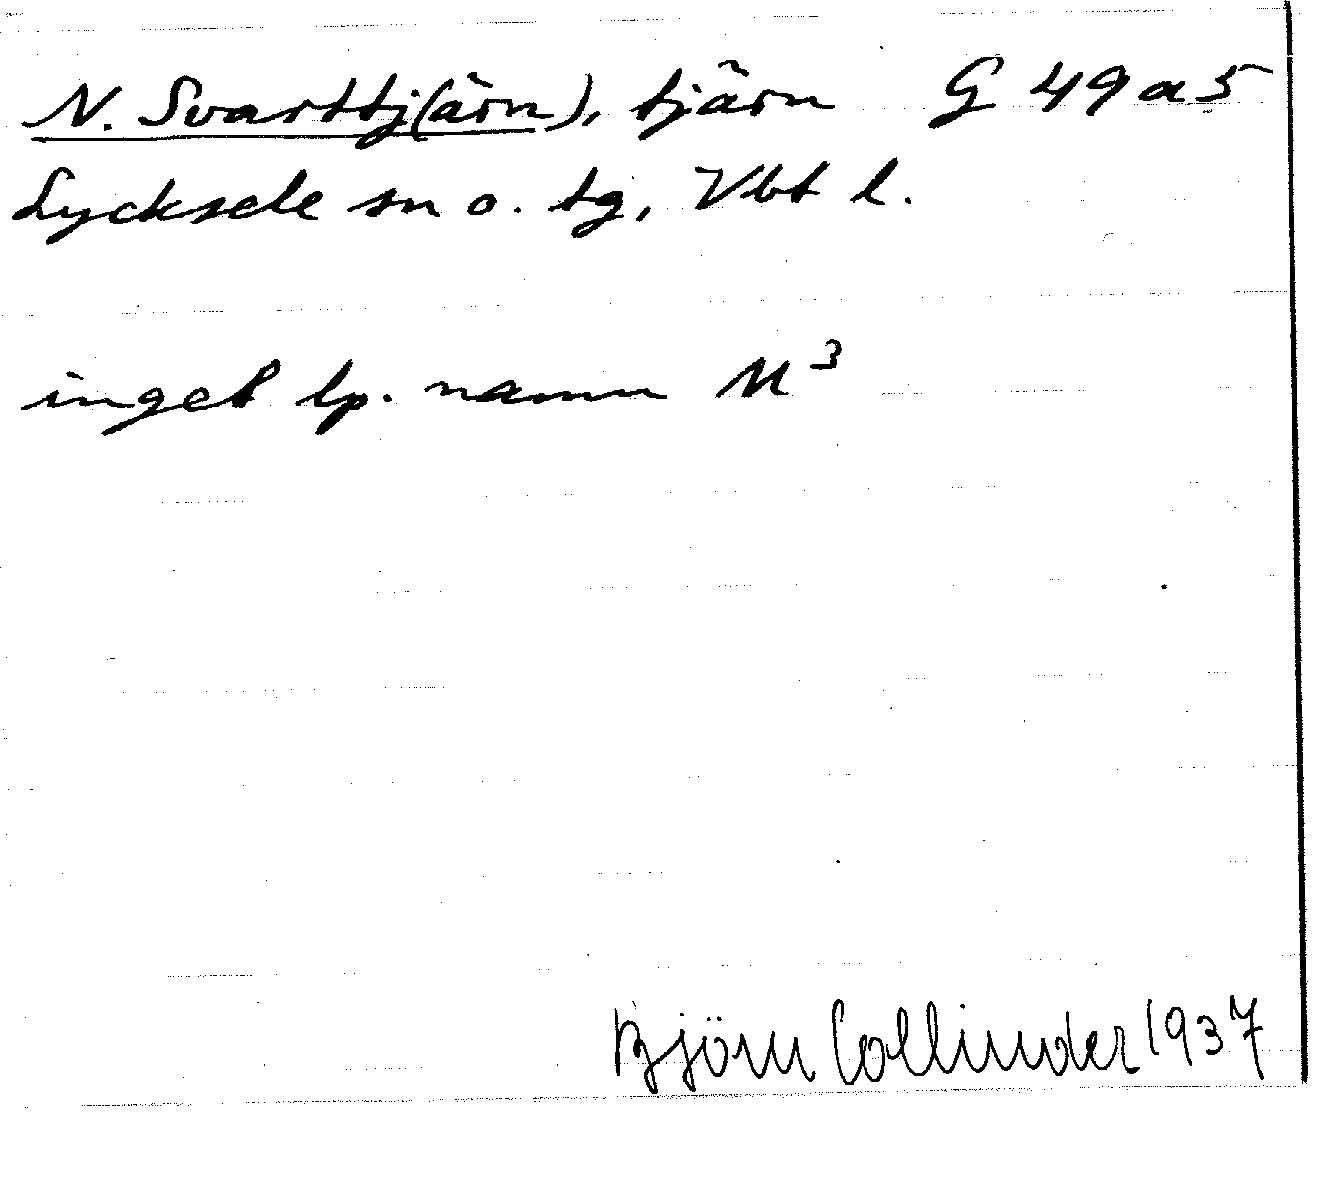 N. Svarttj(ärn), tjärn G 49 a 5
Lycksele sn o. tg, Vbt l.
inget lp. namn M³
Björn Collinder 1937